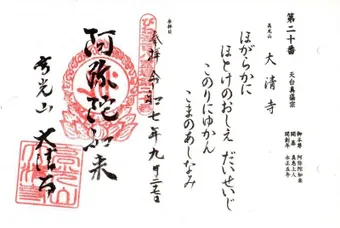 第二十番
天台真盛宗
真光山
大清寺
ほがらかに
ほとけのおしえ だいせいじ
このりにゆかん
こまのあしなみ
御本尊 阿弥陀如来
開基 真恵上人
開創年 永正五年
参拝日
参拝 令和七年九月二七日
阿弥陀如来
寺光山
大清寺